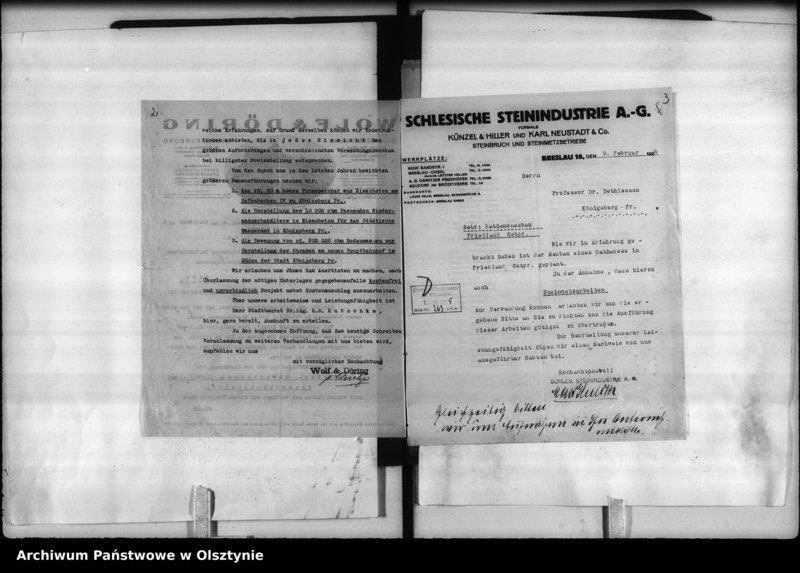 2
reiche Erfahrungen. Auf Grund derselben können wir Konstruk-
tionen anbieten, die in jeder Hinsicht den
größten Anforderungen und verschiedensten Verwendungszwecken
bei billigster Preisstellung entsprechen.
Von den durch uns in den letzten Jahren bewirkten
größeren Bauausführungen nennen wir:
1. den rd. 50 m hohen Turmspeicher aus Eisenbeton am
Hafenbecken IV zu Königsberg Pr.,
2. die Herstellung des 10 000 cbm fassenden Nieder-
wasserbehälters in Eisenbeton für das Städtische
Wasseramt in Königsberg Pr.,
3. die Bewegung von rd. 800 000 cbm Bodenmassen zur
Herstellung der Straßen am neuen Hauptbahnhof im
Süden der Stadt Königsberg Pr.
Wir erlauben uns Ihnen das Anerbieten zu machen, nach
Überlassung der nötigen Unterlagen gegebenenfalls kostenfrei
und unverbindlich Projekt nebst Kostenanschlag auszuarbeiten.
Über unsere Arbeitsweise und Leistungsfähigkeit ist
Herr Stadtbaurat Dr.ing. h.c. Kutschke,
hier, gern bereit, Auskunft zu erteilen.
In der angenehmen Hoffnung, daß das heutige Schreiben
Veranlassung zu weiteren Verhandlungen mit uns bieten wird,
empfehlen wir uns
mit vorzüglicher Hochachtung
Wolf & Döring
3
SCHLESISCHE STEININDUSTRIE A.-G.
VORMALS
KÜNZEL & HILLER UND KARL NEUSTADT & Co.
STEINBRUCH UND STEINMETZBETRIEBE
WERKPLÄTZE:
NEUE SANDSTR. 1
BRESLAU-COSEL
A. D. OSWITZER FRIEDHÖFEN
NEUDORF AM GRÖDITZBERG TEL. 19
BRESLAU 10, DEN 9. Februar
Herrn
Professor Dr. Dethlessen
Königsberg - Pr.
Betr: Rathausneubau
Friedland Ostpr.
Wie wir in Erfahrung ge-
bracht haben ist der Neubau eines Rathauses in
Friedland Ostpr. geplant.
In der Annahme, dass hierzu
auch
Steinmetzarbeiten
zur Verwendung kommen erlauben wir uns die er-
gebene Bitte an Sie zu richten uns die Ausführung
dieser Arbeiten gütigst zu übertragen.
Zur Beurteilung unserer Lei-
stungsfähigkeit fügen wir einen Nachweis von uns
ausgeführter Bauten bei.
Hochachtungsvoll
SCHLES. STEININDUSTRIE A.-G.
Gleichzeitig bitten
wir um
Archiwum Państwowe w Olsztynie